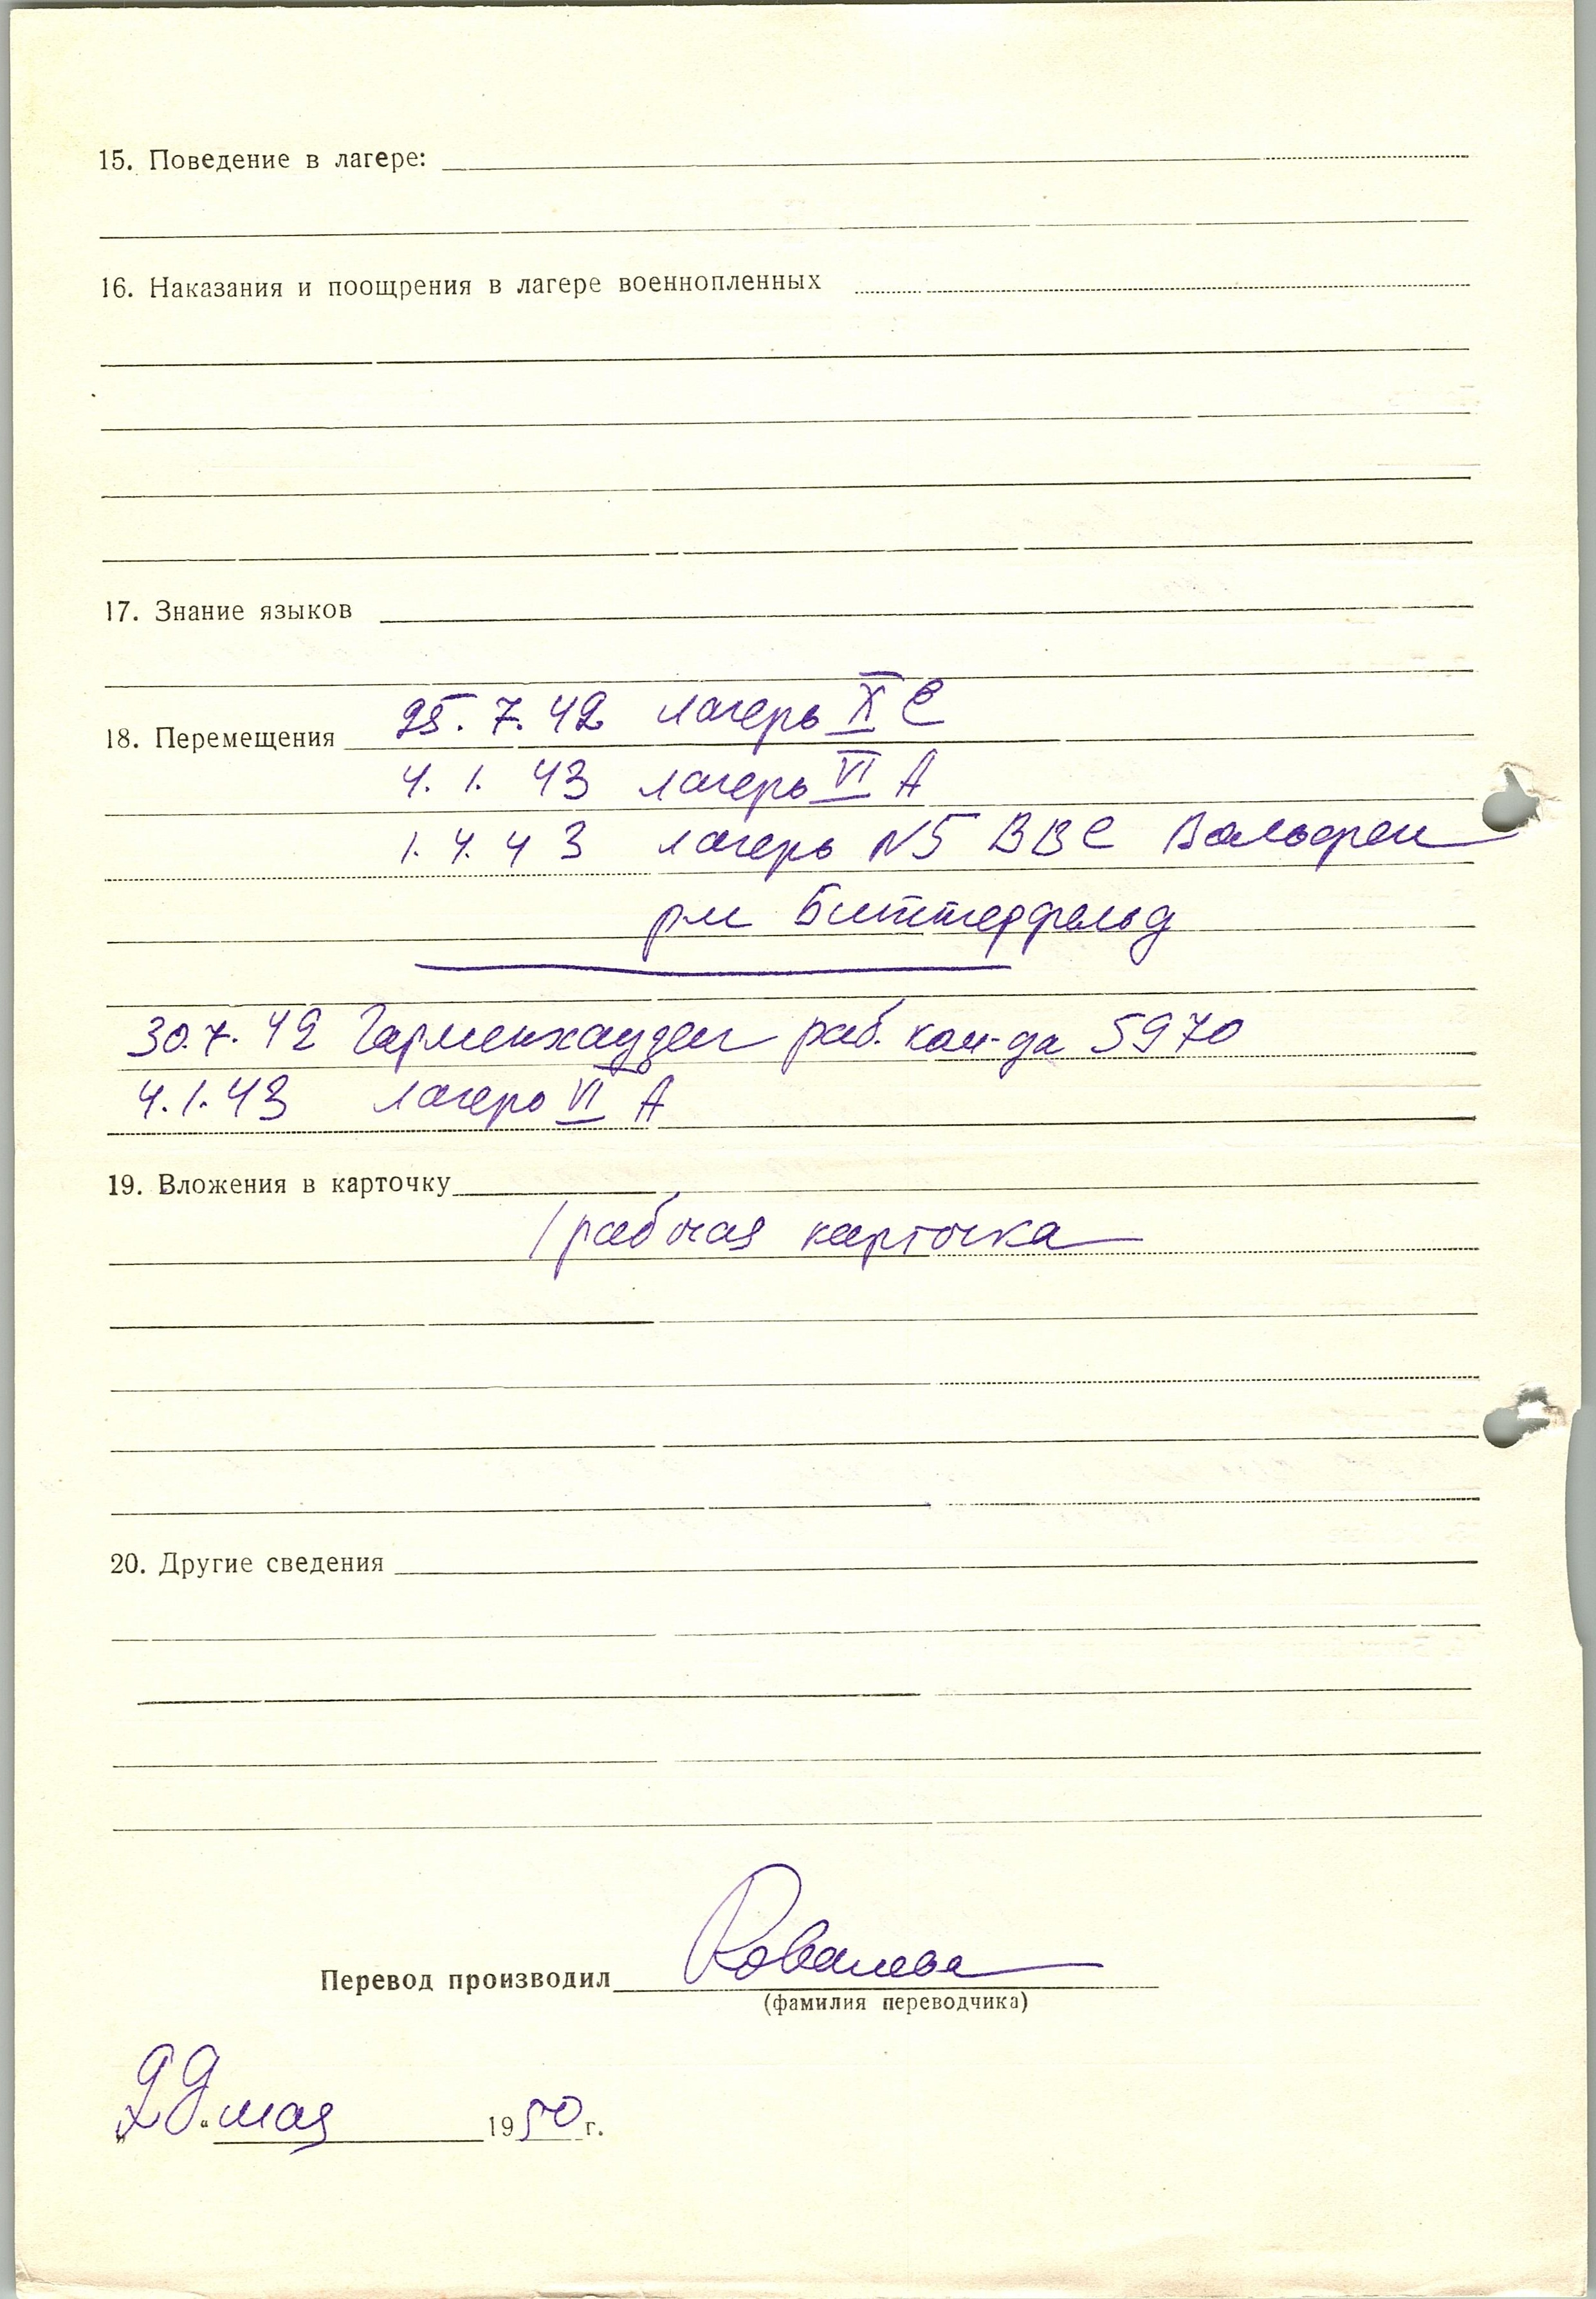 15. Поведение в лагере:
16. Наказания и поощрения в лагере военнопленных
17. Знание языков
18. Перемещения 25. 7. 42 лагерь X С
4. 1. 43 лагерь VI А
1. 4. 43 лагерь N5 ВВС Вальфен
р-н Биттерфельд
30.7.42 Гарменхаузен раб. ком-да 5970
4.1.43 лагерь VI А
19. Вложения в карточку
1 рабочая карточка
20. Другие сведения
Перевод производил Ковалева
(фамилия переводчика)
„29“ мая 1950 г.